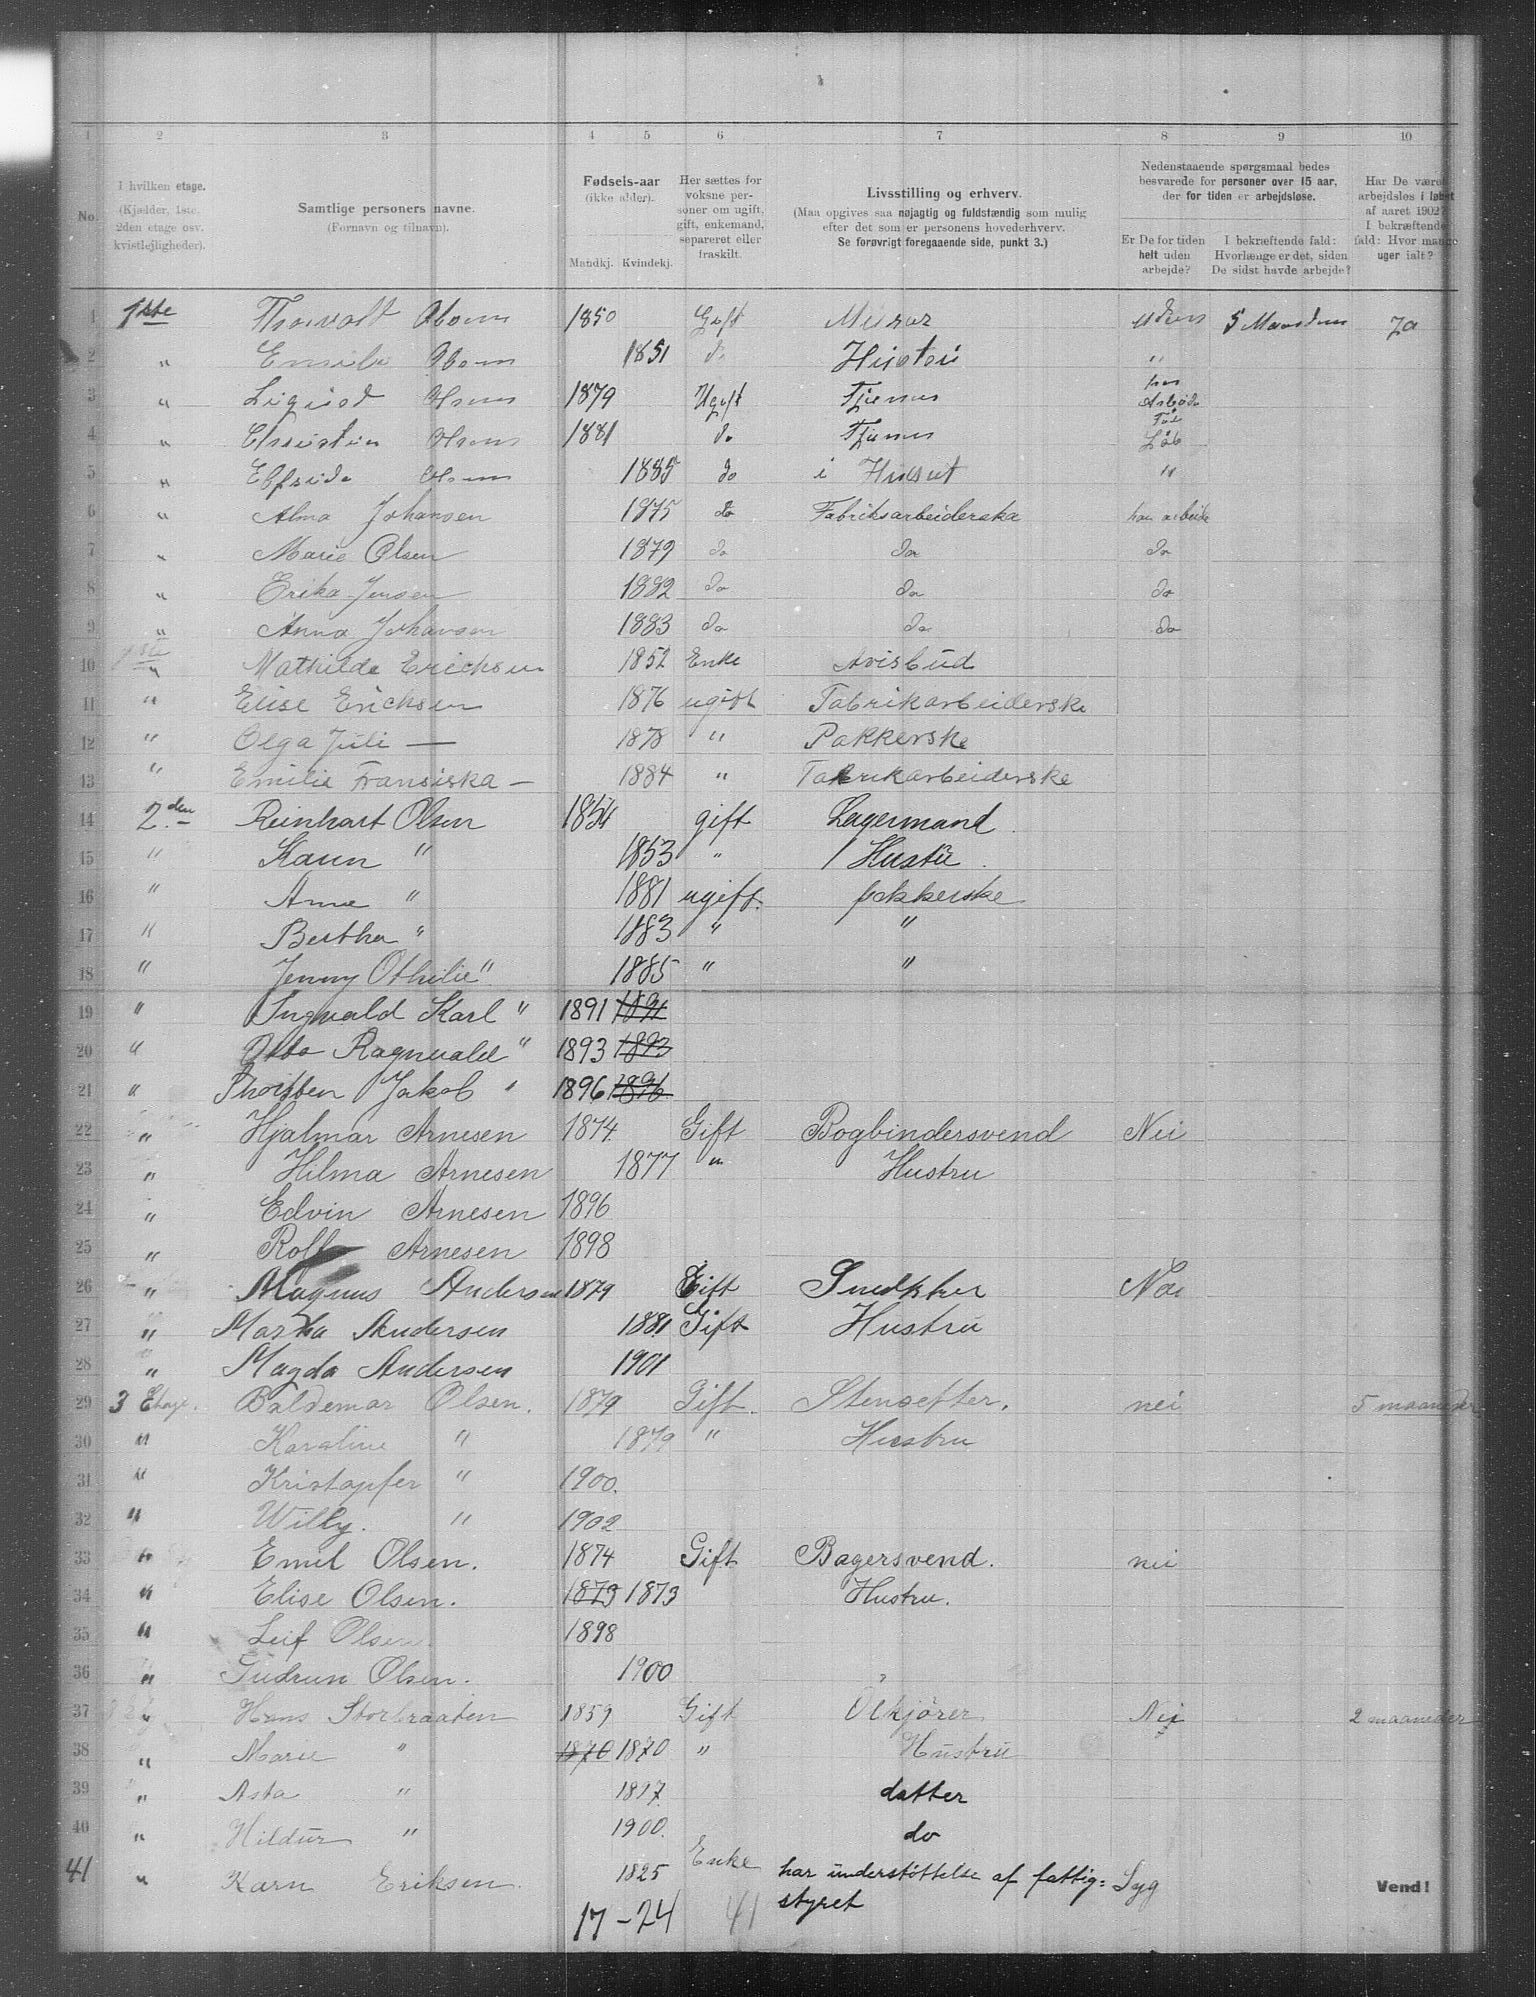 1 2 3 4 5 6 7 8 9 10
No.
I hvilken etage.
(Kjælder, 1ste, 2den etage osv. kvistlejligheder).
Samtlige personers navne.
(Fornavn og tilnavn).
Fødsels-aar
(ikke alder).
Mandkj. Kvindekj.
Her sættes for voksne personer om ugift, gift, enkemand, separeret eller fraskilt.
Livsstilling og erhverv.
(Maa opgives saa nøjagtig og fuldstændig som mulig efter det som er personens hovederhverv.
Se forøvrigt foregaaende side, punkt 3.)
Nedenstaaende spørgsmaal bedes besvarede for personer over 15 aar, der for tiden er arbejdsløse.
Er De for tiden helt uden arbejde?
I bekræftende fald: Hvorlænge er det, siden De sidst havde arbejde?
Har De været arbejdsløs i løbet af aaret 1902? I bekræftende fald: Hvor mange uger ialt?
1 1ste Thorvalt 1850 Gift Murar 5 Ja
2 " 1851 do "
3 " 1879 Ugift
4 " 1881 do
5 " 1885 do i Huset "
6 " Alma Johansen 1875 do Fabriksarbeiderska har arbeide
7 " Marie Olsen 1879 do do do
8 " Erika Jensen 1882 do do do
9 " Anna Johansen 1883 do do do
10 " Mathilde Ericksen 1852 Enke Avisbud
11 " Elise Ericksen 1876 ugift Fabrikarbeiderske
12 " Olga Juli — 1878 " Pakkerske
13 " Emilie Fransiska — 1884 " Fabrikarbeiderske
14 2.den Reinhart Olsen 1854 gift Lagermand
15 " Karen " 1853 " Hustru
16 " Anna " 1881 ugift. pakkerske
17 " Bertha " 1883 " "
18 " Jenny Othilie " 1885 " "
19 " Ingvald Karl " 1891 1891
20 " Otto Ragnvald " 1893 1893
21 " Thorsten Jakob " 1896 1896
22 " Hjalmar Arnesen 1874 Gift Bogbindersvend Nei
23 " Hilma Arnesen 1877 " Hustru
24 " Edvin Arnesen 1896
25 " Rolf Arnesen 1898
26 " Magnus Andersen 1879 Gift Snedkker Nei
27 " Martha Andersen 1881 Gift Hustru
28 " Magda Andersen 1901
29 3 Etage. Valdemar Olsen. 1879 Gift. Stensetter. nei 5 maaneder
30 " Karoline " 1879 " Hustru
31 " Kristopfer " 1900.
32 " Willy. " 1902
33 " Emil Olsen. 1874 Gift Bagersvend. nei
34 " Elise Olsen. 1873 1873 Hustru.
35 " Leif Olsen. 1898
36 " Gudrun Olsen. 1900
37 " Hans Storbraaten 1859 Gift Ølkjører Nei 2 maaneder
38 " Marie " 1870 1870 " Hustru
39 " Asta " 1897 datter
40 " Hildur " 1900. do
41 " Karn Eriksen. 1825 Enke har understøttelse af fattig= Syg
styret
Vend!
17 - 24 41